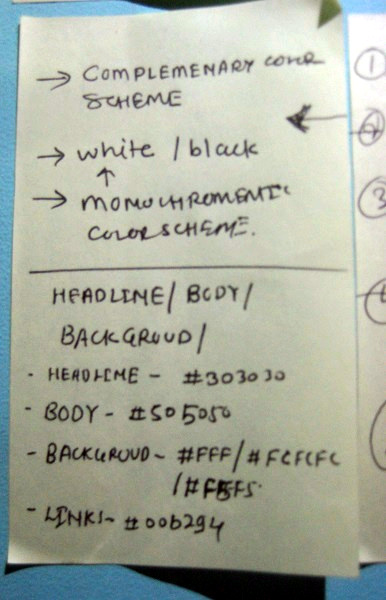 → COMPLEMENARY COLOR
SCHEME
→ white / black
↑
→ MONOCHROMENTIC
COLOR SCHEME.
HEADLINE / BODY /
BACKGROUD /
- HEADLINE - #303030
- BODY - #505050
- BACKGROUD - #FFF / #FCFCFC
/ #F5F5F5
- LINKS - #00b294
1
3